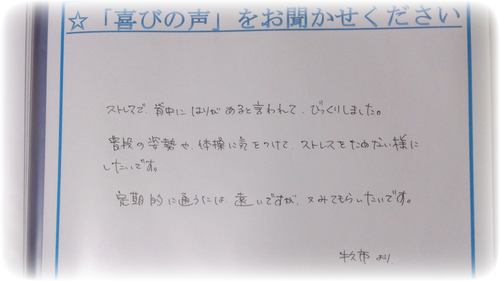 ☆「喜びの声」をお聞かせください
ストレスで、背中にはりがあると言われて、びっくりしました。
普段の姿勢や、体操に気をつけて、ストレスをためない様に
したいです。
定期的に通うには遠いですが、又みてもらいたいです。
牛久市 より